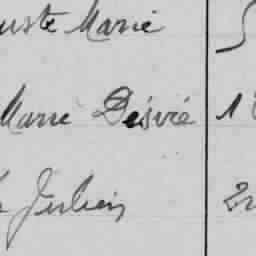 uste Marie 5
Marie Désiré 1
Julien 2